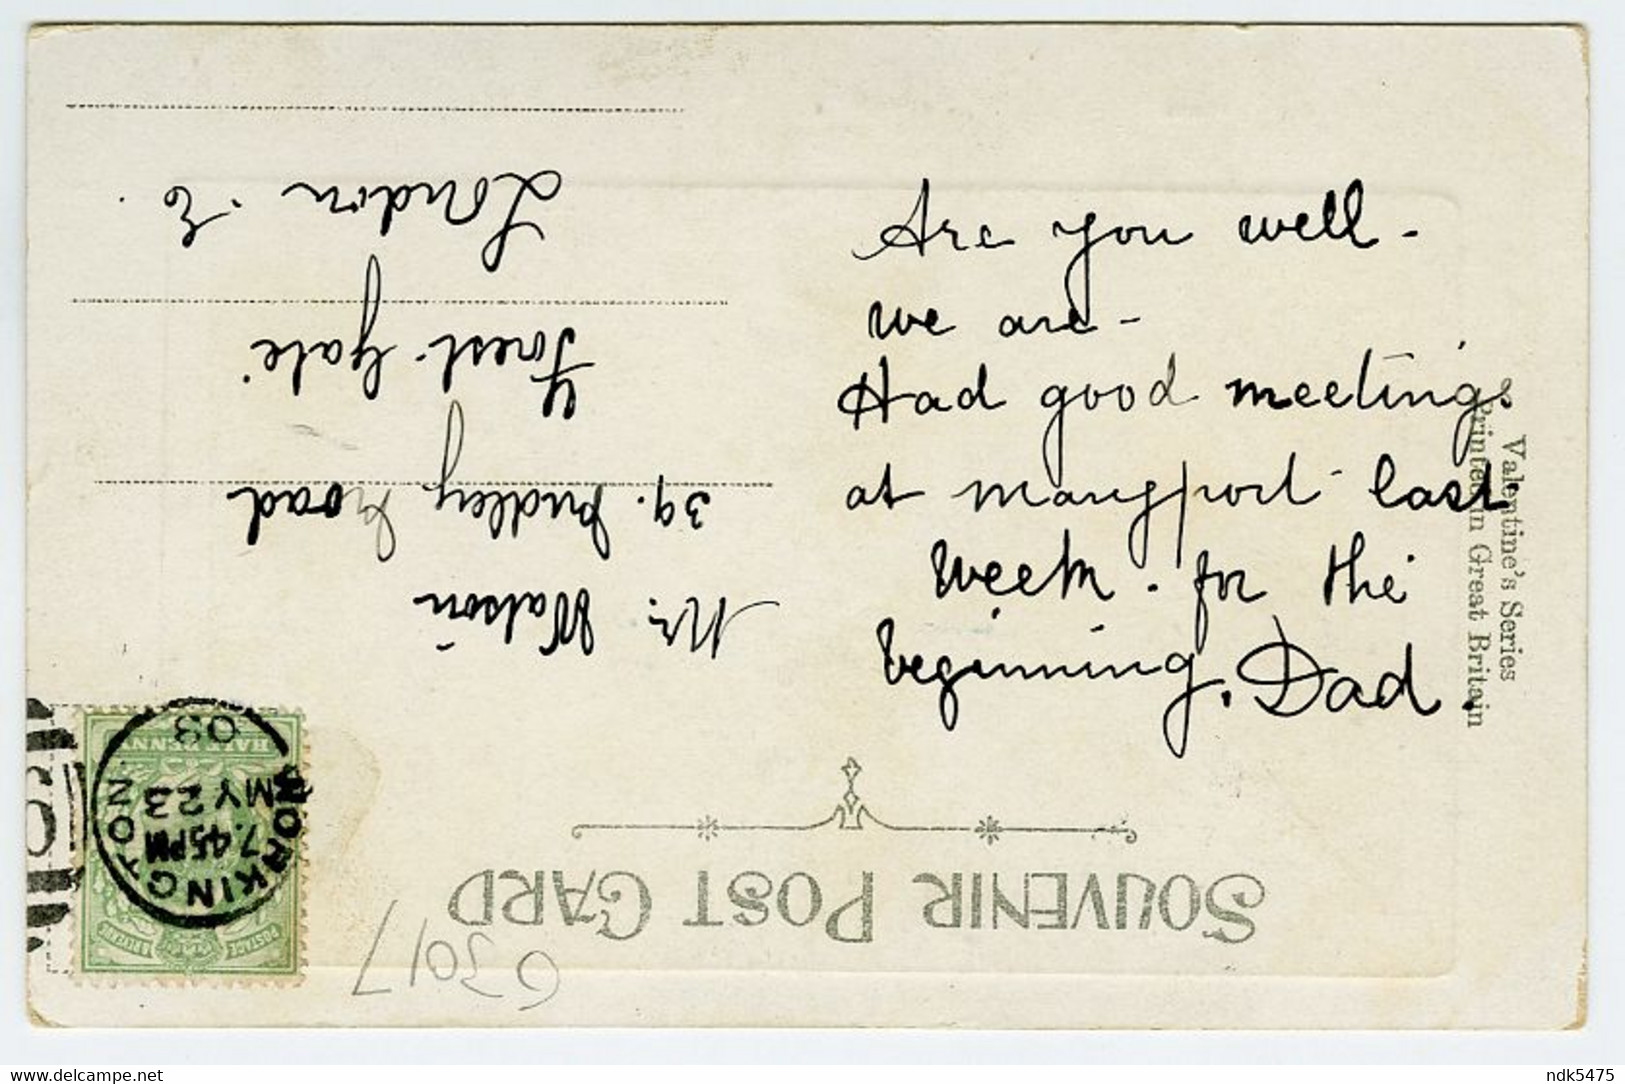 Are you well -
we are -
Had good meetings
at maryport last
week. for the
beginning. Dad.
SOUVENIR POST CARD
Mr. Watson
39. Dudley Road
Forest. Gate
London. E.
Valentine's Series
Printed in Great Britain
WORKINGTON
7.45PM
MY 23
03
HALF PENNY
POSTAGE & REVENUE
www.delcampe.net
ndk5475